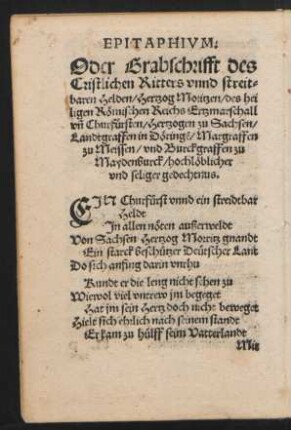 EPITAPHIVM:
Oder Grabschrifft des
Cristlichen Ritters vnnd streit-
baren Helden/Hertzog Moritzen/des hei
ligen Römischen Reichs Ertzmarschall
vñ Churfürsten/Hertzogen zu Sachsen/
Landtgraffen in Döring̃/Margraffen
zu Meissen/vnd Burckgraffen zu
Maydenburck/hochlöblicher
vnd seliger gedechtnus.
EIN Churfürst vnnd ein streidtbar
Heldt
In allen nöten außerweldt
Von Sachsen Hertzog Moritz gnandt
Ein starck beschützer Deütscher Lant
Do sich anfing darin vnrhu
Kundt er die leng nicht sehen zu
Wiewol viel vntrew jm begeget
Hat jm sein Hertz doch nicht beweget
Hielt sich ehrlich nach seinem standt
Er kam zu hülff seim Vatterlandt
Mit